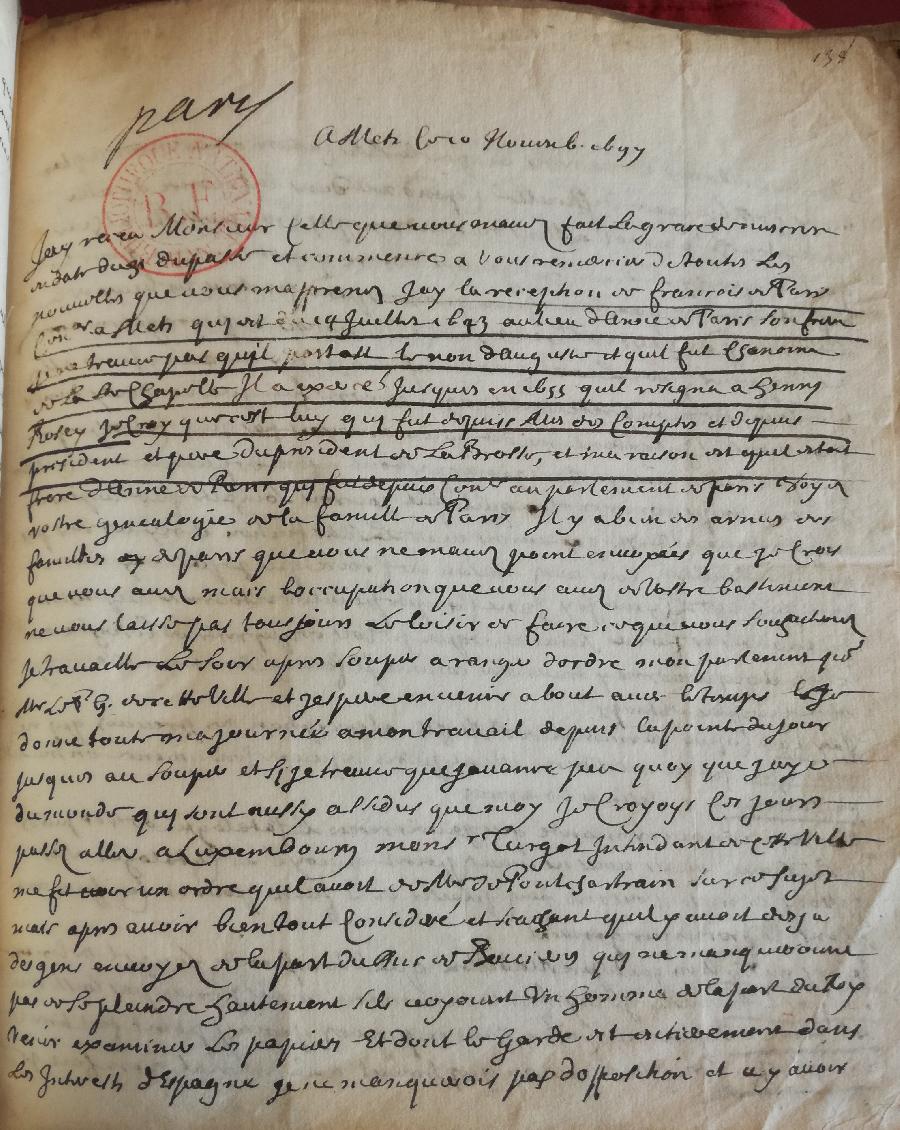 138
pary
A Metz Ce 10 Novemb. 1697
BIBLIOTHEQUE NATIONALE
B F
Jay receu Monsieur Celle que vous mavez fait la grace de mescrire
en date du 31 du passé et commence a vous remercier de toutes les
nouvelles que vous mapprenez Jay la reception de francois de Paris
Conser a Metz qui est du 14 Juillet 1643 au lieu danne de Paris son frere
je ne trouve pas quil portast le nom dauguste et quil fut Chanoine
de la Ste Chapelle Il a exercé Jusques en 1655 quil resigna a henry
Rosey Je Croy que cest luy qui fut depuis Mtre des Comptes et depuis
president et pere du president de La Brosse, et ma raison est quil estoit
frere danne de Paris qui fut depuis Conser au parlement de paris voyez
vostre genealogie de la famille de Paris Il y a bien des armes des
familles de paris que vous ne mavez point envoyées que je Crois
que vous avez mais loccupation que vous avez de Vostre bastiment
ne vous laisse pas tousjours Le loisir de faire ce que vous souhaitteriez
Je travaille Le Soir apres Souper a ranger dordre mon parlement
Mr Le P. G. de cette Ville et Jespere en venir a bout avec le temps
donne toute ma journée a mon travail depuis la pointe du jour
Jusques au Souper et Si je trouve que Javance peu quoy que Jaye
du monde qui sont aussy assidus que moy Je Croyoys Ces Jours
passez aller a Luxembourg monsr Turgot Intendant de Cette Ville
me fit voir un ordre quil avoit de Mr de Pontchartrain sur ce Sujet
mais apres avoir bien tout Consideré et scachant quil y avoit desja
des gens envoyez de la part du Duc de Baviere qui ne manqueroient
pas de Se pleindre hautement sils voyoient Un homme de la part du Roy
Venir examiner Les papiers Et dont la Garde est entierement dans
Les Interests dEspagne je ne manquerois pas dopposition et a y avoir